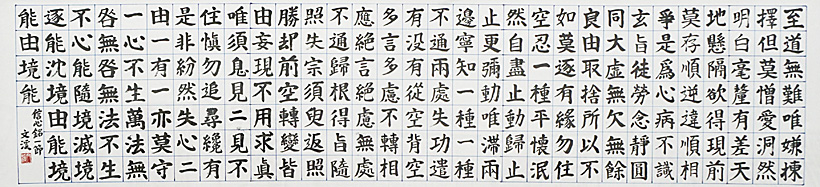 至道無難唯嫌揀
擇但莫憎愛洞然
明白毫釐有差天
地懸隔欲得現前
莫存順逆違順相
爭是爲心病不識
玄旨徒勞念靜圓
同大虛無欠無餘
良由取捨所以不
如莫逐有緣勿住
空忍一種平懷泯
然自盡止動歸止
止更彌動唯滯兩
邊寧知一種一種
不通兩處失功遣
有没有從空背空
多言多慮不轉相
應絶言絶慮無處
不通歸根得旨隨
照失宗須臾返照
勝却前空轉變皆
由妄現不用求真
唯須息見二見不
住愼勿追尋纔有
是非紛然失心二
由一有一亦莫守
一心不生萬法無
咎無咎無法不生
不心能隨境滅境
逐能沈境由能境
能由境能
信心銘一節
文溪